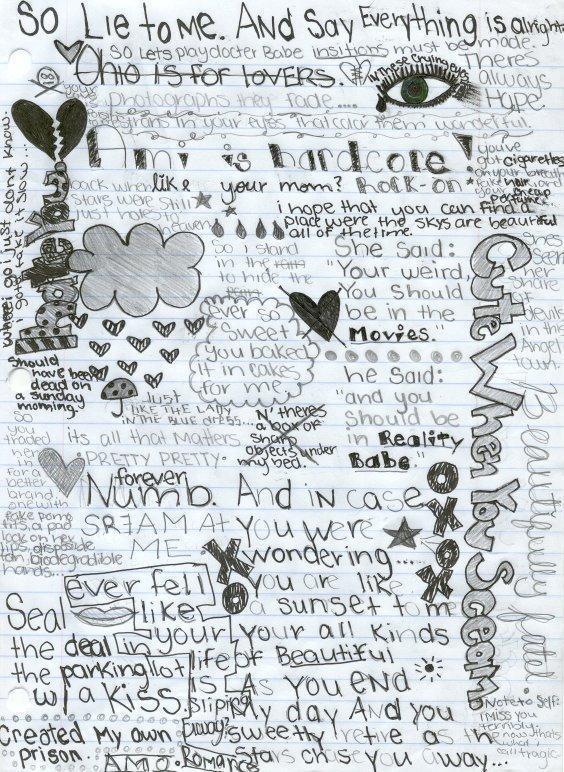 So Lie to me. And Say Everything is alright
So Lets play docter Babe insitions must be made.
Ohio is for lovers.
In These Crying eyes
Theres
always
Hope.
photographs they fade ....
in your eyes That color them wonderful.
Ami is hardcore!
back when
like your mom? Rock-on*
stars were still
just holes to
heaven
you've
got cigarettes
on your breath
hair and
cheap
perfume
i hope that you can find a
place were the skys are beautiful
all of the time.
So i stand
in the
to hide the
She Said:
"Your weird,
You should
be in the
Movies."
he Said:
"and you
Should be
in Reality
Babe."
shes
Seen
her
share
of
devils
in this
Angel
town.
ever so
Sweet
you baked
it in cakes
for me
where i go i just dont know.
i gotta take it slow...
Should
have been
dead on
a sunday
morning.
Just
LIKE THE LADY
IN THE BLUE DRESS...
its all that Matters
PRETTY PRETTY
N' theres
a box of
sharp
objects under
my bed.
So
you
traded
her in
for a
better
brand
one with
fake
lips disposible
biodegradible
hands...
forever
Numb.
SREAM AT
ME
And in case
you were
wondering...
you are like
a sunset to me
your all kinds
of Beautiful
As you end
My day And you
sweetly retire as in
Stars chase you away...
Cute When You Scream
XOXO
XO
Beautifully
Seal
the deal in
the parking lot
w/ a kiss.
ever fell
like
your
life
is
Sliping
away?
Created My own
prison.
A.M.O. Romance
Note to Self:
I MISS YOU
terribly
thats
what
call
tragic.